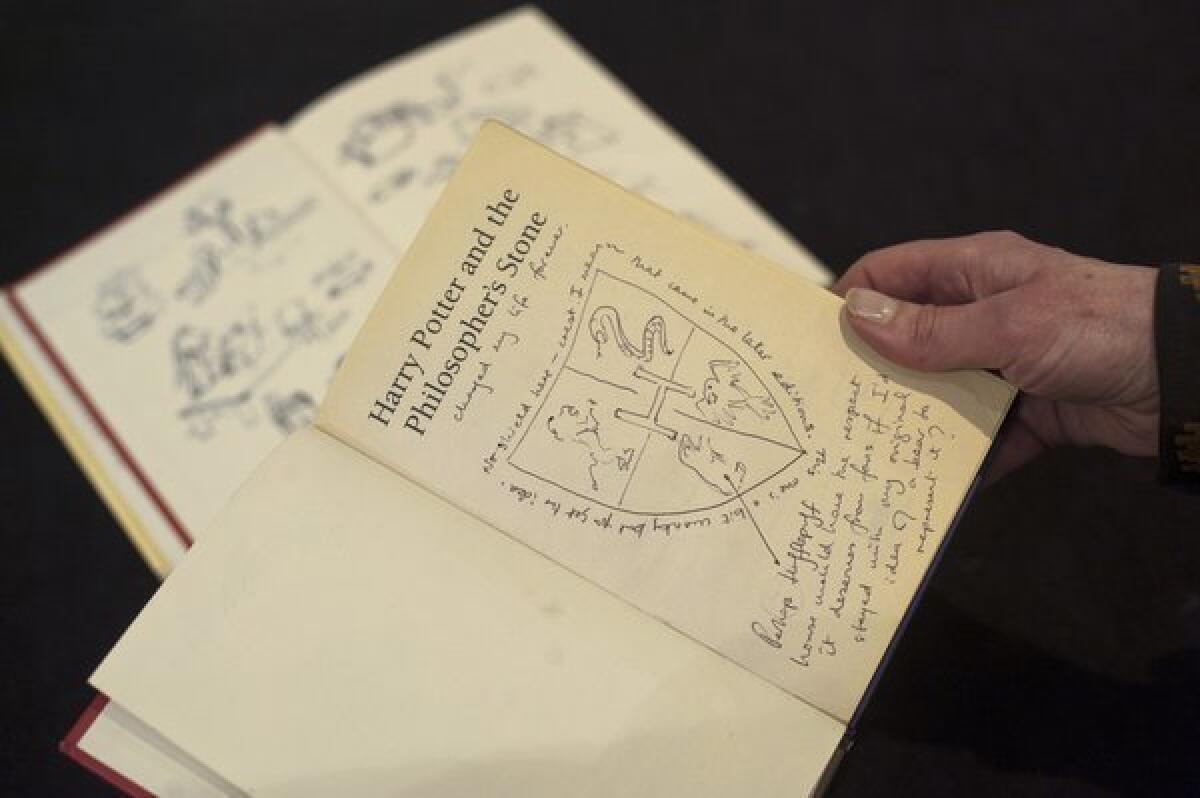 Harry Potter and the
Philosopher's Stone
changed my life forever.
No shield here – crest I mean – that came in the later editions.
H
He's a bit wonky but you get the idea.
Perhaps Hufflepuff
house would have the respect
it deserves from fans if I'd
stayed with my original
idea of a bear to
represent it?